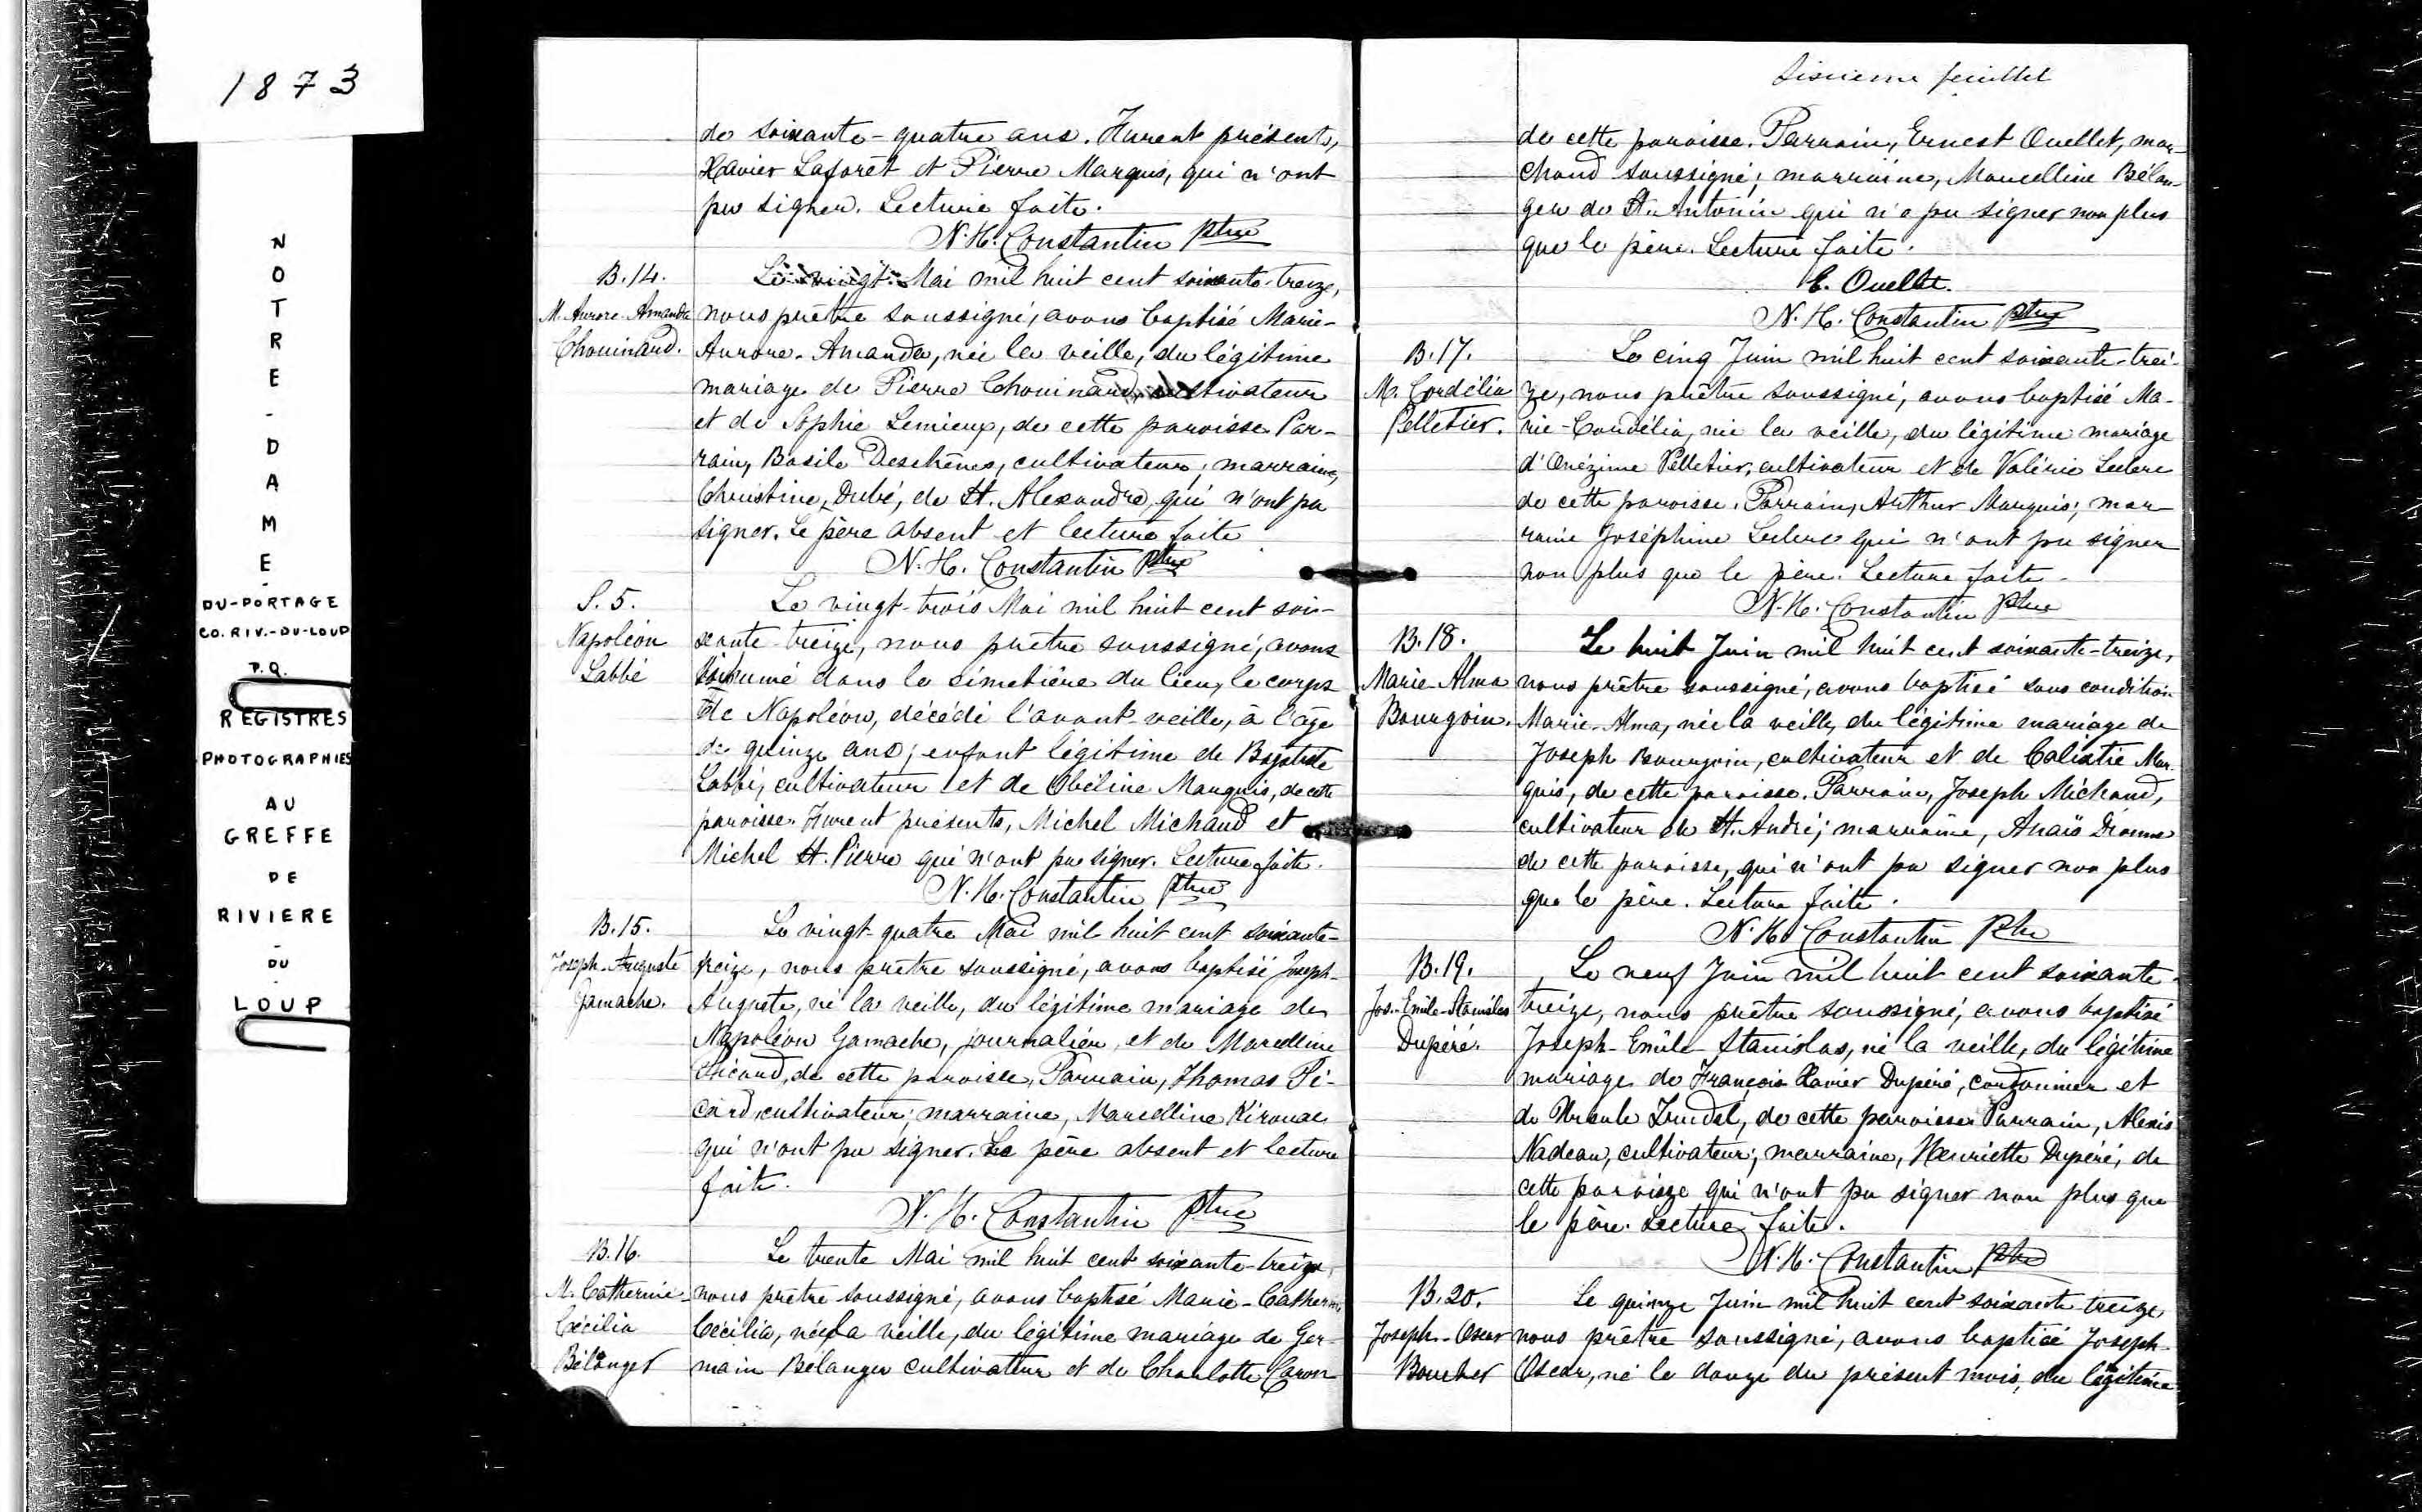 1873
NOTRE-DAME-
DU-PORTAGE
CO. RIV.-DU-LOUP
P.Q.
REGISTRES
PHOTOGRAPHIES
AU
GREFFE
DE
RIVIERE
-
DU
-
LOUP
de soixante-quatre ans. Furent présents,
Xavier Laforêt et Pierre Marquis, qui n'ont
pu signer. Lecture faite.
N. H. Constantin Ptre
B.14.
M. Aurore-Amanda
Chouinard.
Le vingt Mai mil huit cent soixante-treize,
nous prêtre soussigné, avons baptisé Marie-
Aurore-Amanda, née la veille, du légitime
mariage de Pierre Chouinard, cultivateur
et de Sophie Lemieux, de cette paroisse. Par-
rain, Basile Deschênes, cultivateur; marraine,
Christine Dubé, de St. Alexandre, qui n'ont pu
signer. Le père absent et lecture faite
N. H. Constantin Ptre
S. 5.
Napoléon
Labbé
Le vingt-trois Mai mil huit cent soi-
xante-treize, nous prêtre soussigné, avons
inhumé dans le cimetière du lieu, le corps
de Napoléon, décédé l'avant-veille, à l'âge
de quinze ans; enfant légitime de Baptiste
Labbé, cultivateur et de Obéline Marquis, de cette
paroisse. Furent présents, Michel Michaud et
Michel St. Pierre qui n'ont pu signer. Lecture faite.
N. H. Constantin Ptre
B.15.
Joseph-Auguste
Gamache.
Le vingt-quatre Mai mil huit cent soixante-
treize, nous prêtre soussigné, avons baptisé Joseph-
Auguste, né la veille, du légitime mariage de
Napoléon Gamache, journalier, et de Marcelline
Picard, de cette paroisse, Parrain, Thomas Pi-
card, cultivateur; marraine, Marcelline Kirouac
qui n'ont pu signer. Le père absent et lecture
faite.
N. H. Constantin Ptre
B.16.
M. Catherine-
Cécilia
Bélanger
Le trente Mai mil huit cent soixante-treize,
nous prêtre soussigné, avons baptisé Marie-Catherine
Cécilia, née la veille, du légitime mariage de Ger-
main Bélanger cultivateur et de Charlotte Caron
Sixième feuillet
de cette paroisse. Parrain, Ernest Ouellet, mar-
chand soussigné; marraine, Marcelline Bélan-
ger de St. Antonin qui n'a pu signer non plus
que le père. Lecture faite.
E. Ouellet.
N. H. Constantin Ptre
B.17.
M. Cordélia
Pelletier.
Le cinq Juin mil huit cent soixante-trei-
ze, nous prêtre soussigné, avons baptisé Ma-
rie-Cordélia, née la veille, du légitime mariage
d'Onézime Pelletier, cultivateur et de Valérie Leclerc
de cette paroisse. Parrain, Arthur Marquis; mar-
raine Joséphine Leclerc qui n'ont pu signer
non plus que le père. Lecture faite.
N. H. Constantin Ptre
B.18.
Marie Alma
Bourgoin.
Le huit Juin mil huit cent soixante-treize,
nous prêtre soussigné, avons baptisé sous condition
Marie-Alma, née la veille, du légitime mariage de
Joseph Bourgoin, cultivateur et de Calixtie Mar-
quis, de cette paroisse. Parrain, Joseph Michaud,
cultivateur de St. André; marraine, Anaïs Dionne
de cette paroisse, qui n'ont pu signer non plus
que le père. Lecture faite.
N. H. Constantin Ptre
B.19.
Jos.-Emile-Stanislas
Dupéré.
Le neuf Juin mil huit cent soixante-
treize, nous prêtre soussigné, avons baptisé
Joseph-Emile-Stanislas, né la veille, du légitime
mariage de François Xavier Dupéré, cordonnier et
de Ursule Trudel, de cette paroisse. Parrain, Alexis
Nadeau, cultivateur; marraine, Henriette Dupéré, de
cette paroisse qui n'ont pu signer non plus que
le père. Lecture faite.
N. H. Constantin Ptre
B.20.
Joseph-Oscar
Boucher
Le quinze Juin mil huit cent soixante-treize,
nous prêtre soussigné, avons baptisé Joseph-
Oscar, né le douze du présent mois, du légitime